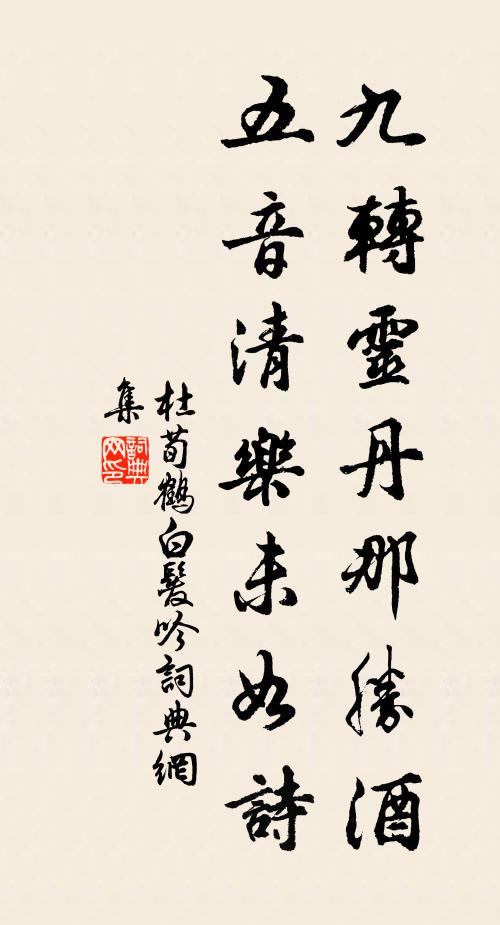 九轉靈丹那勝酒
五音清樂未如詩
杜荀鶴白髮吟詞典網
集
詞典網印